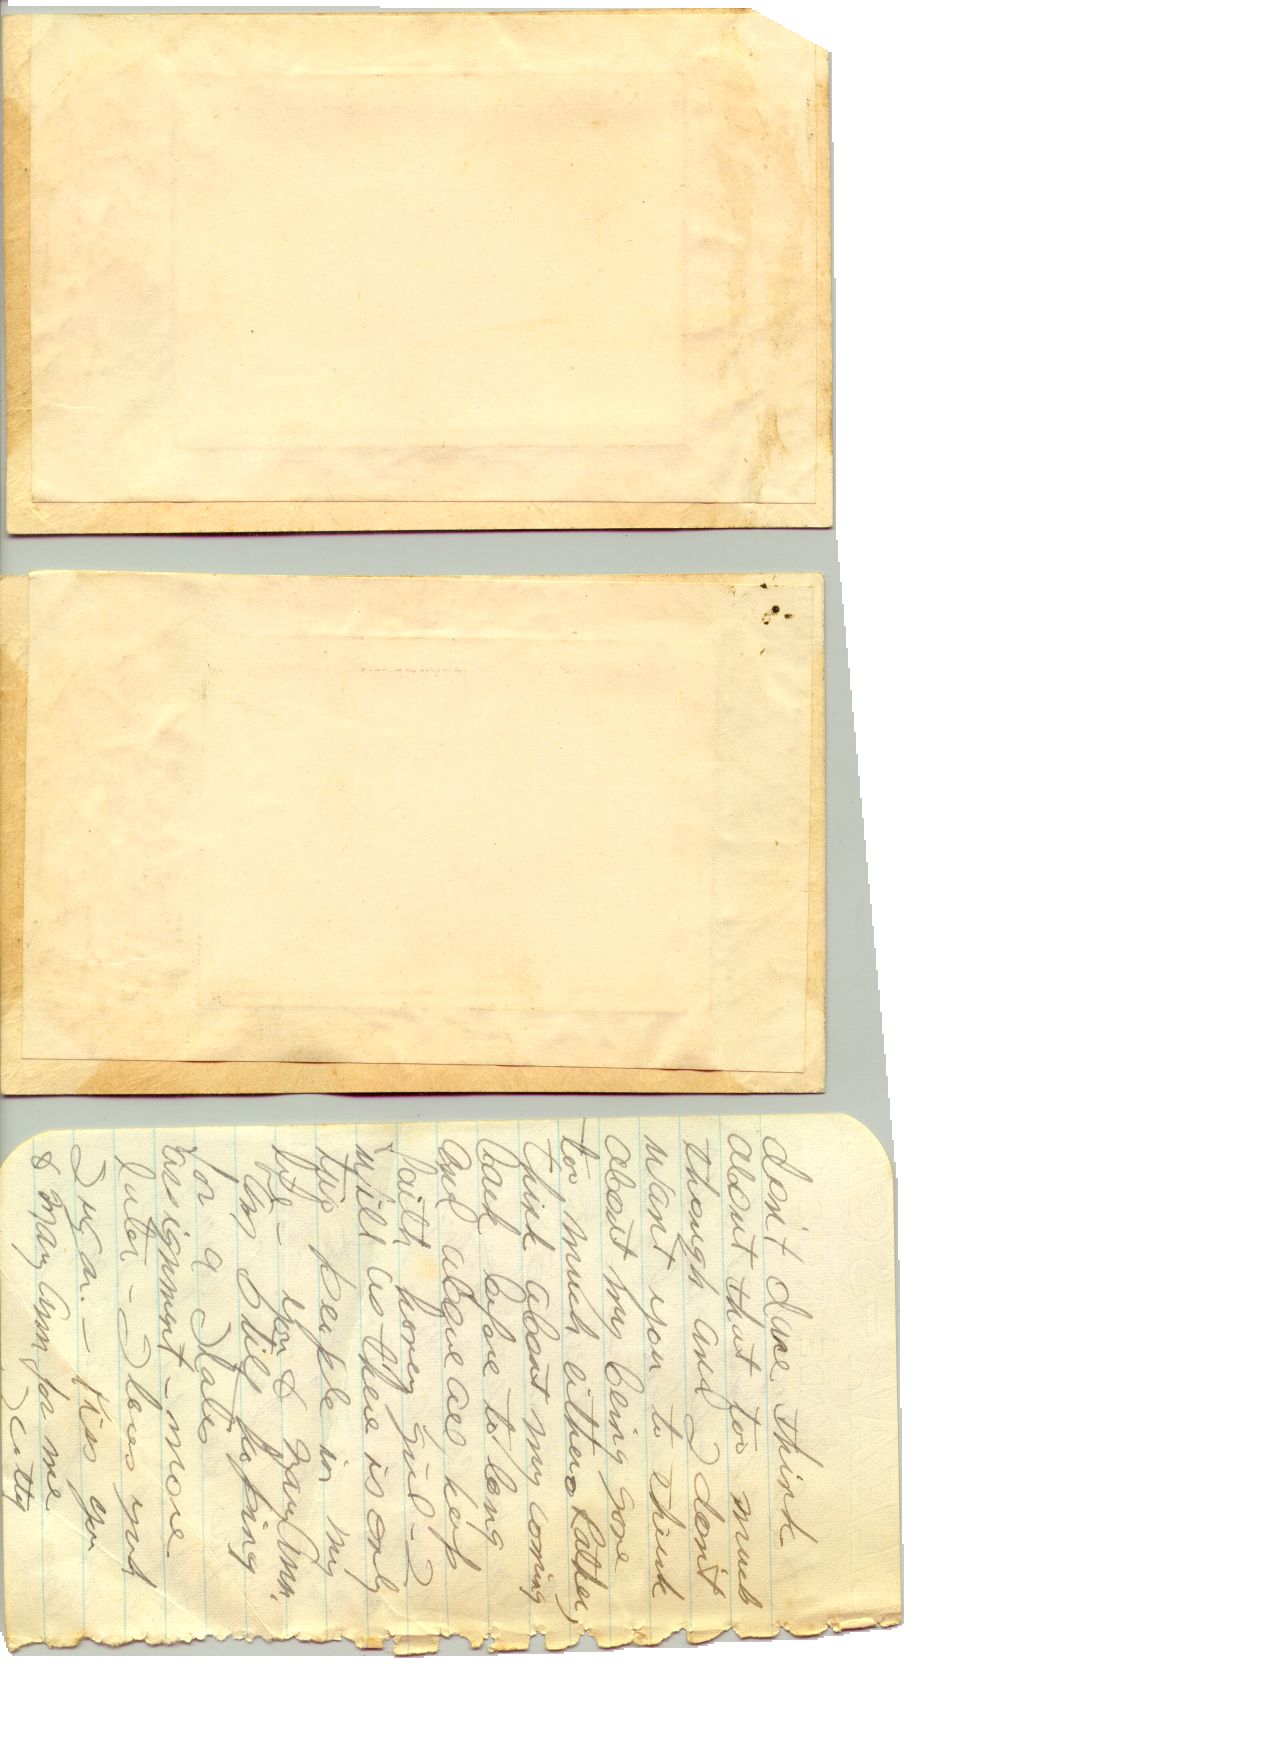 don't dare think
about that too much
though and I don't
want you to think
about my being gone
too much either. Rather,
think about my coming
back before to long
and above all keep
faith honey girl - I
will as there is only
two people in my
life - you & Mary Ann.
Im still hoping
for a State
assignment - more
later. - I love you
Sugar. - Kiss you
& Mary Ann for me